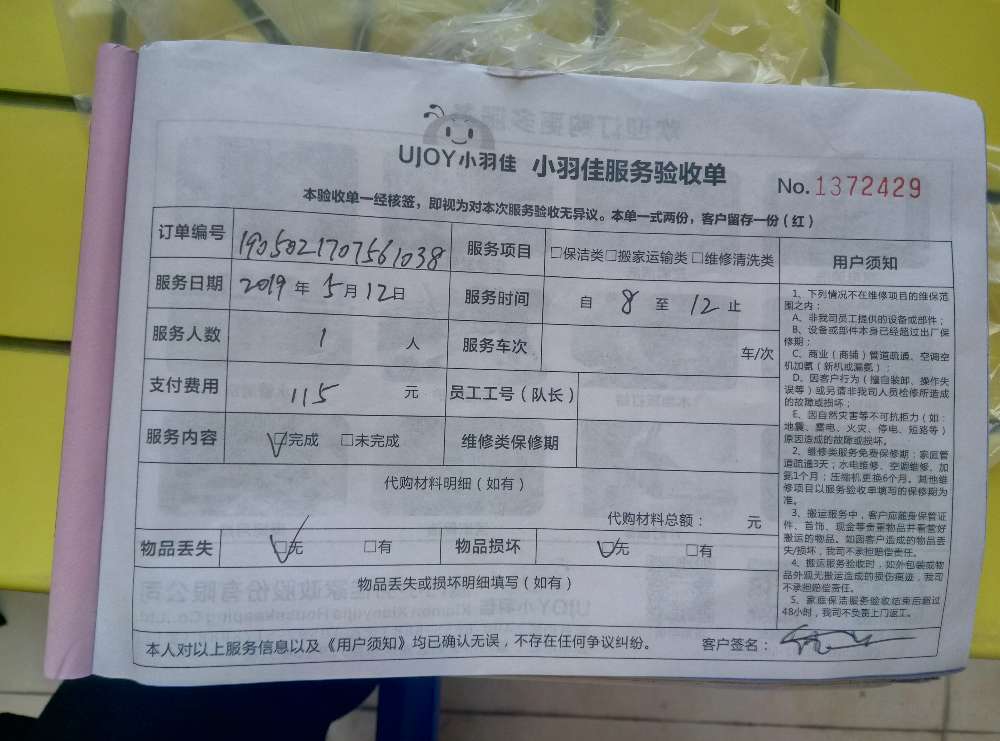 UJOY小羽佳 小羽佳服务验收单
No.1372429
本验收单一经核签，即视为对本次服务验收无异议。本单一式两份，客户留存一份（红）
订单编号 1905021707561038 服务项目 □保洁类□搬家运输类□维修清洗类
服务日期 2019年5月12日 服务时间 自 8 至 12 止
服务人数 1 人 服务车次 车/次
支付费用 115 元 员工工号（队长）
服务内容 ☑完成 □未完成 维修类保修期
代购材料明细（如有）
代购材料总额： 元
物品丢失 ☑无 □有 物品损坏 ☑无 □有
物品丢失或损坏明细填写（如有）
用户须知
1、下列情况不在维修项目的维保范
围之内：
A、非我司员工提供的设备或部件；
B、设备或部件本身已经超过出厂保
修期；
C、商业（商铺）管道疏通、空调空
机加氨（新机或漏氨）；
D、因客户行为（擅自装卸、操作失
误等）或另请非我司人员检修所造成
的故障或损坏；
E、因自然灾害等不可抗拒力（如：
地震、雷电、火灾、停电、短路等）
原因造成的故障或损坏。
2、维修类服务免费保修期：家庭管
道疏通3天；水电维修、空调维修、加
氨1个月；压缩机更换6个月。其他维
修项目以服务验收单填写的保修期为
准。
3、搬运服务中，客户应随身保管证
件、首饰、现金等贵重物品并看管好
搬运的物品。如因客户造成的物品丢
失/损坏，我司不承担赔偿责任。
4、搬运服务验收时，如外包装或物
品外观无搬运造成的损伤痕迹，我司
不承担赔偿责任。
5、家庭保洁服务验收结束后超过
48小时，我司不负责上门返工。
本人对以上服务信息以及《用户须知》均已确认无误，不存在任何争议纠纷。 客户签名：